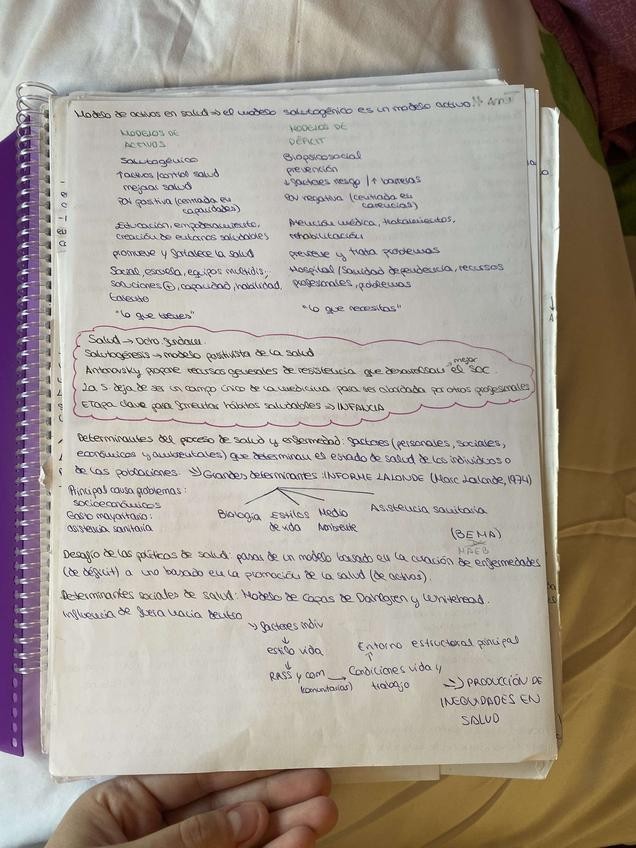 Modelo de activos en salud → el modelo salutogénico es un modelo activo!!
MODELOS DE ACTIVOS
Salutogénico
↑activos/control salud
mejorar salud
EN positiva (centrada en capacidades)
Educación, empoderamiento,
creación de entornos saludables
promueve y fortalece la salud
Social, escuela, equipos multidis.,
soluciones ⊕, capacidad, habilidad,
talento
"lo que tienes"
MODELOS DE DÉFICIT
Biopsicosocial
prevención
↓factores riesgo / ↑ barreras
EN negativa (centrada en carencias)
Atención médica, tratamientos,
rehabilitación
previene y trata problemas
Hospital/Sanidad dependencia, recursos
profesionales, problemas
"lo que necesitas"
Salud → Dcho. fundam.
Salutogénesis → modelo positivista de la salud
Antonovsky propone recursos generales de resistencia que desarrollan mejor el SOC.
La S. deja de ser un campo único de la medicina para ser abordada por otros profesionales
Etapa clave para fomentar hábitos saludables → INFANCIA
Determinantes del proceso de salud y enfermedad: factores (personales, sociales,
económicos y ambientales) que determinan el estado de salud de los individuos o
de las poblaciones. ↘ Grandes determinantes: INFORME LALONDE (Marc Lalonde, 1974)
Principal causa problemas:
socioeconómicos
Gasto mayoritario:
asistencia sanitaria
Biología Estilos de vida Medio Ambiente Asistencia sanitaria
(BEMA)
MAEB
Desafío de las políticas de salud: pasar de un modelo basado en la curación de enfermedades
(de déficit) a uno basado en la promoción de la salud (de activos).
Determinantes sociales de salud: Modelo de capas de Dahlgren y Whitehead.
Influencia de fuera hacia dentro
↘ factores indiv
↓
estilo vida
↓
RRSS y com (comunitarias) → Condiciones vida y trabajo
↑
Entorno estructural principal
PRODUCCIÓN DE
INEQUIDADES EN
SALUD